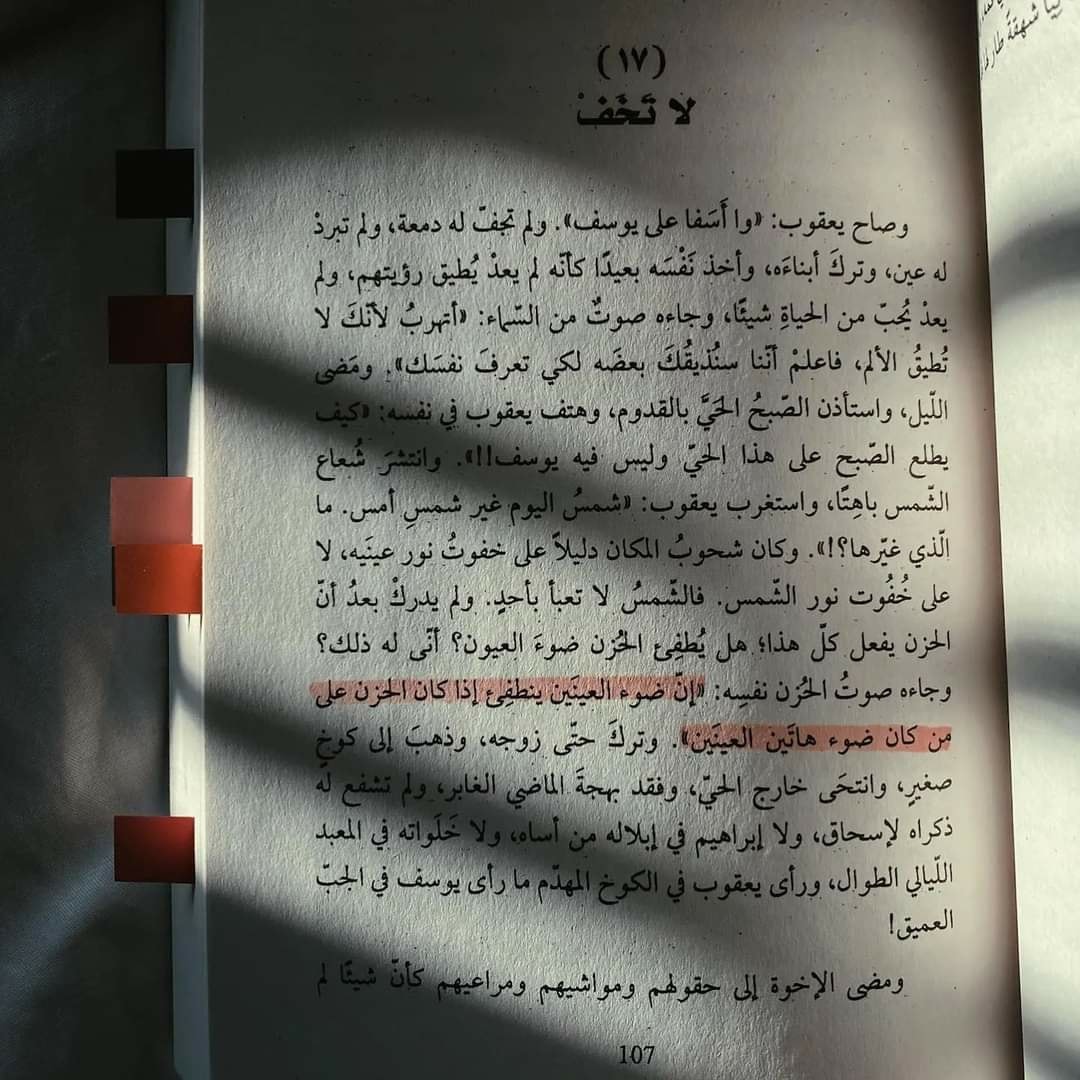 (١٧)
لا تَخَفْ
وصاح يعقوب: «وا أَسَفا على يوسف». ولم تجفّ له دمعة، ولم تبردْ
له عين، وتركَ أبناءَه، وأخذ نَفْسَه بعيدًا كأنّه لم يعدْ يُطيق رؤيتهم، ولم
يعدْ يُحبّ من الحياةِ شيئًا، وجاءه صوتٌ من السّماء: «أتهربُ لأنّكَ لا
تُطيقُ الألم، فاعلمْ أنّنا سنُذيقُكَ بعضَه لكي تعرفَ نفسَك». ومَضى
اللّيل، واستأذن الصّبحُ الحَيَّ بالقدوم، وهتف يعقوب في نفسه: «كيف
يطلع الصّبح على هذا الحيّ وليس فيه يوسف!!». وانتشرَ شُعاع
الشّمس باهِتًا، واستغرب يعقوب: «شمسُ اليوم غير شمسِ أمس. ما
الّذي غيّرها؟!». وكان شحوبُ المكان دليلاً على خفوتُ نور عينَيه، لا
على خُفُوت نور الشّمس. فالشّمسُ لا تعبأ بأحدٍ. ولم يدركْ بعدُ أنّ
الحزن يفعل كلّ هذا؛ هل يُطفِئ الحُزن ضوءَ العيون؟ أنّى له ذلك؟
وجاءه صوتُ الحُزن نفسِه: «إنّ ضوء العينَين ينطفِئ إذا كان الحزن على
من كان ضوء هاتَين العينَين». وتركَ حتّى زوجه، وذهبَ إلى كوخٍ
صغيرٍ، وانتحَى خارج الحيّ، وفقد بهجةَ الماضي الغابر، ولم تشفع له
ذكراه لإسحاق، ولا إبراهيم في إبلاله من أساه، ولا خَلَواته في المعبد
اللّيالي الطوال، ورأى يعقوب في الكوخ المهدّم ما رأى يوسف في الجبّ
العميق!
ومضى الإخوة إلى حقولهم ومواشيهم ومراعيهم كأنّ شيئًا لم
107
شهقةً